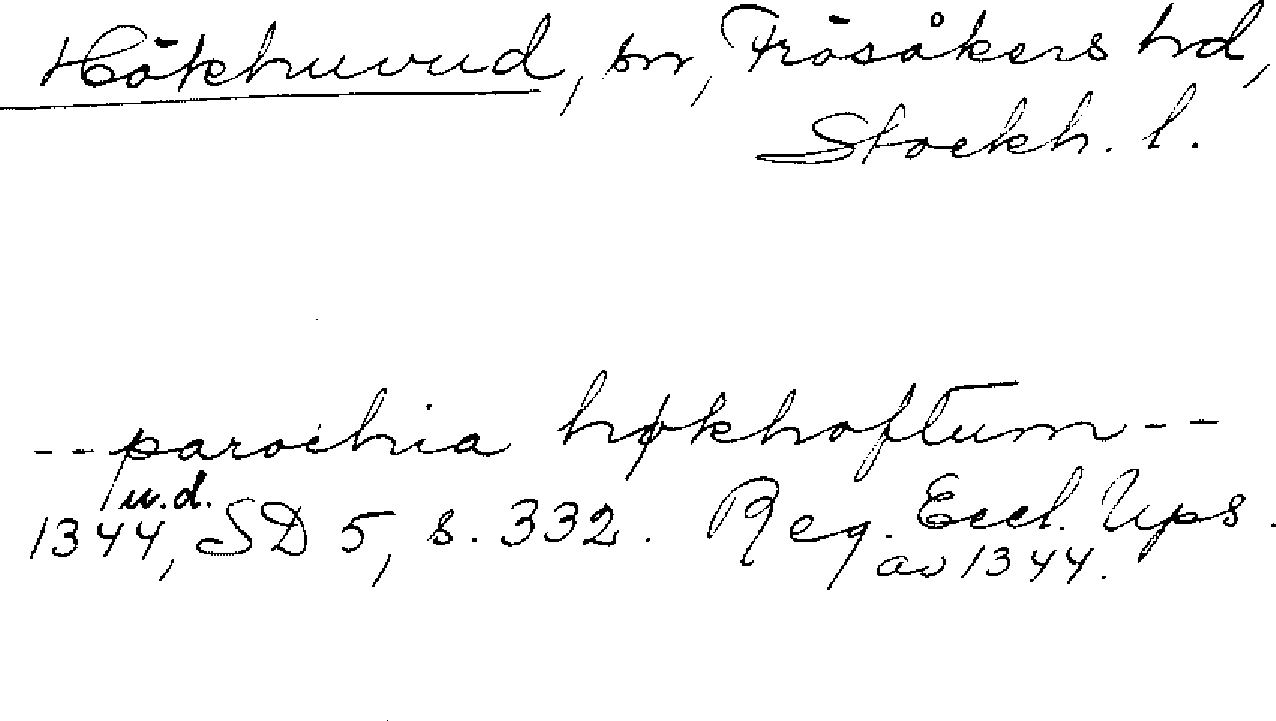 Hökhuvud, sn, Frösåkers hd,
Stockh. l.
-- parochia høkhoftum --
u.d.
1344, SD 5, s. 332. Reg. Eccl. Ups.
av 1344.